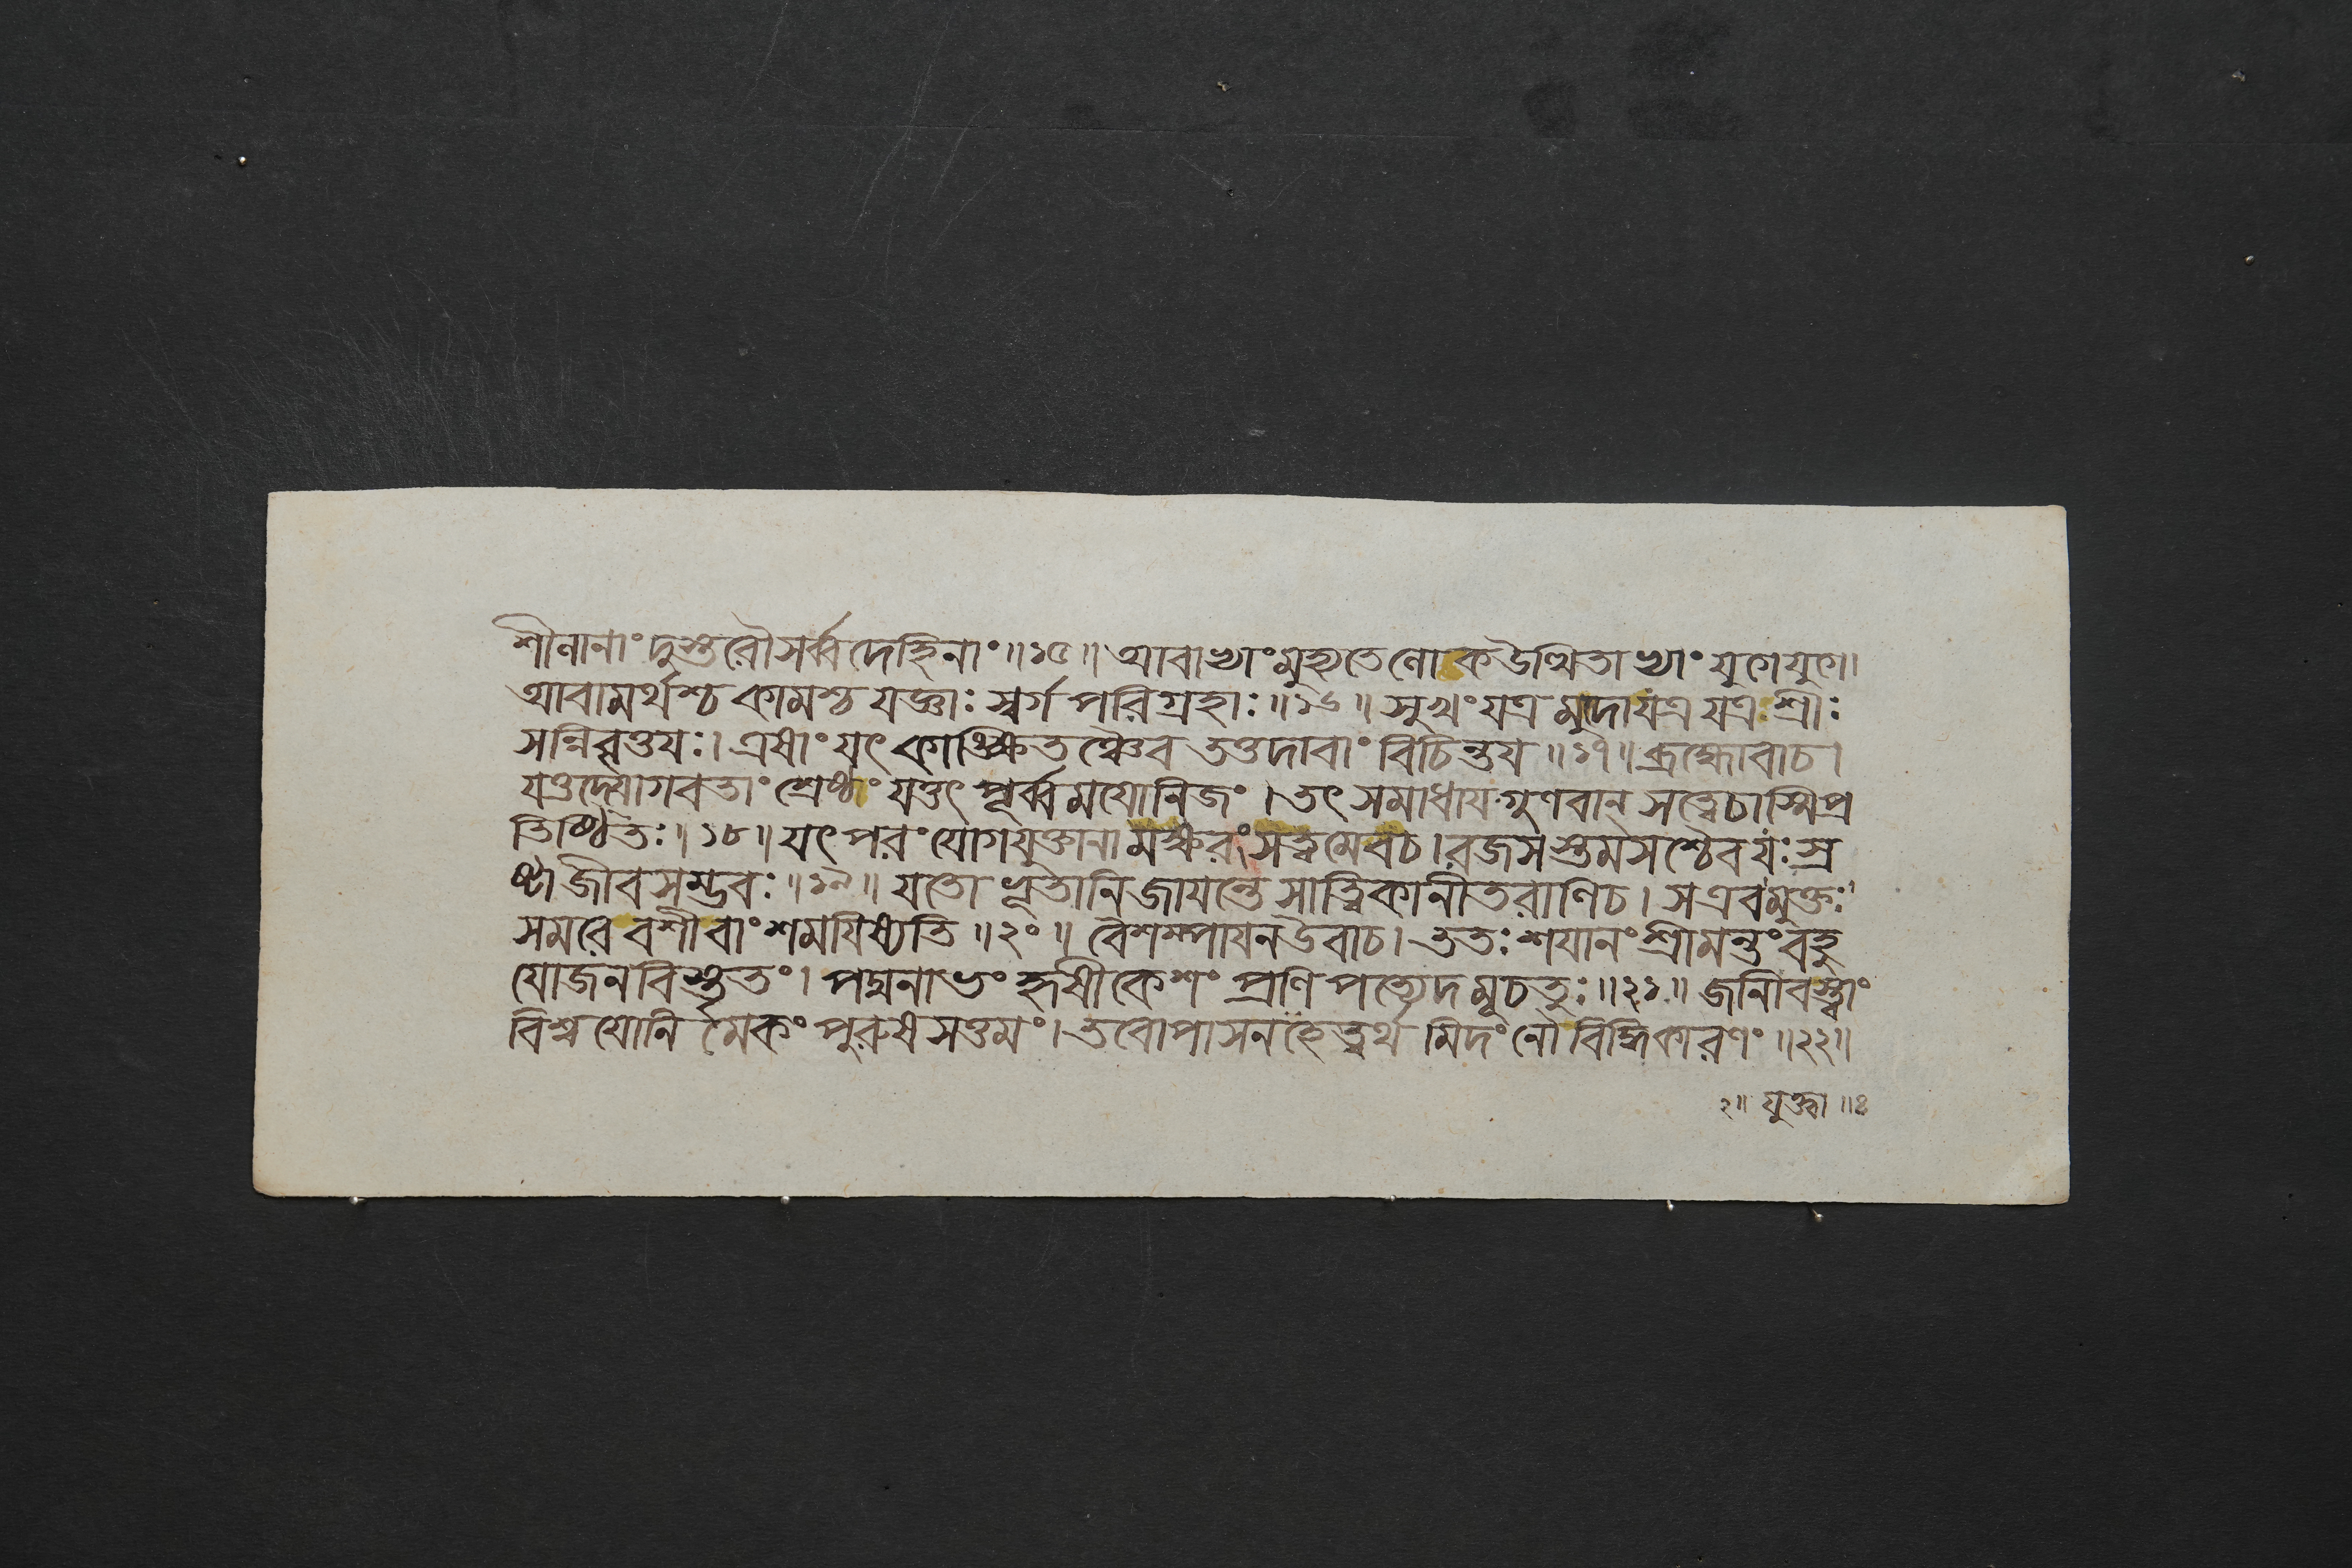 শীলানাং দুস্তরৌসর্ব্বদেহিনাং॥১৫॥আবাভ্যাং মুহ্যতেলোকউচ্ছ্রিতাভ্যাং যুগেযুগে।
আবামর্থশ্চ কামশ্চ যজ্ঞাঃ স্বর্গপরিগ্রহাঃ॥১৬॥সুখং যত্র মুদোযত্র যত্র শ্রীঃ
সন্নিরত্নয়ঃ।এষাং যৎ কাঙ্ক্ষিতঞ্চৈব তত্তদাবাং বিচিন্তয়॥১৭॥ব্রহ্মোবাচ।
যত্তদ্যোগবতাং শ্রেষ্ঠং যত্তৎ পূর্ব্বমযোনিজং।তৎ সমাধায় গুণবান্ সত্ত্বেচাস্মিপ্র
তিষ্ঠিতঃ॥১৮॥যৎ পরং যোগযুক্তানামক্ষরং সত্ত্বমেবচ।রজসস্তমসশ্চৈব যঃ স্র
ষ্টা জীবসম্ভবঃ॥১৯॥যতো ভূতানি জায়ন্তে সাত্ত্বিকানীতরাণিচ।সএবমুক্তঃ
সমরে বশী বাং শময়িষ্যতি॥২০॥বৈশম্পায়নউবাচ।ততঃ শয়ানং শ্রীমন্তং বহু
যোজনবিস্তৃতং।পদ্মনাভং হৃষীকেশং প্রণিপত্যেদমূচতুঃ॥২১॥জানীবস্ত্বাং
বিশ্বযোনি মেকং পুরুষসত্তমং।তবোপাসনহেত্বর্থ মিদং নৌ বিদ্ধিকারণং॥২২॥
২॥ যুক্তা॥ঃ